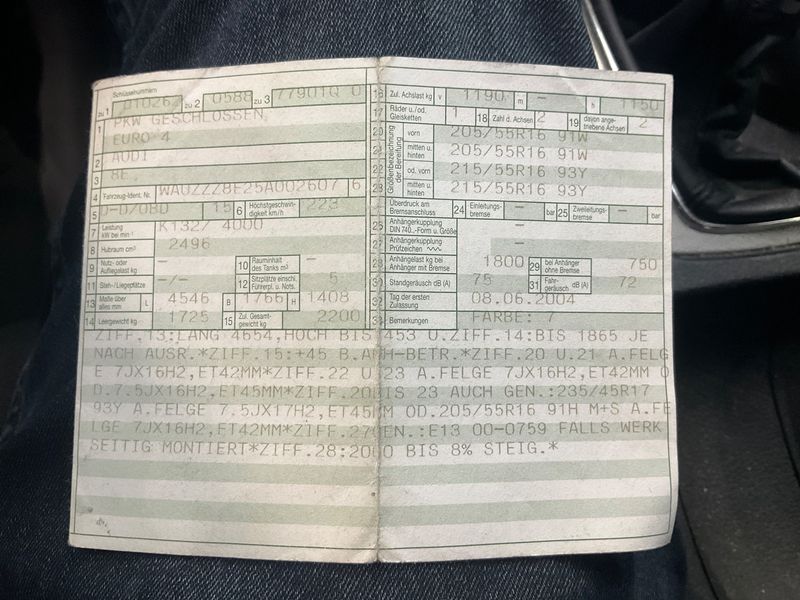 Schlüsselnummern
zu 1 010262 zu 2 0588 zu 3 77901Q 0
1 PKW GESCHLOSSEN
EURO 4
2 AUDI
3 8E
4 Fahrzeug-Ident. Nr. WAUZZZ8E25A002607 6
5 D-D/OBD 15 6 Höchstgeschwindigkeit km/h 223
7 Leistung kW bei min⁻¹ K132/ 4000
8 Hubraum cm³ 2496
9 Nutz- oder Aufliegelast kg – 10 Rauminhalt des Tanks m³ –
11 Steh-/Liegeplätze –/– 12 Sitzplätze einschl. Führerpl. u. Nots. 5
13 Maße über alles mm L 4546 B 1766 H 1408
14 Leergewicht kg 1725 15 Zul. Gesamtgewicht kg 2200
16 Zul. Achslast kg v 1190 m – h 1150
17 Räder u./od. Gleisketten 1 18 Zahl d. Achsen 2 19 davon angetriebene Achsen 2
Größenbezeichnung der Bereifung
20 vorn 205/55R16 91W
21 mitten u. hinten 205/55R16 91W
22 od. vorn 215/55R16 93Y
23 mitten u. hinten 215/55R16 93Y
Überdruck am Bremsanschluss 24 Einleitungsbremse – bar 25 Zweileitungsbremse – bar
26 Anhängerkupplung DIN 740..-Form u. Größe –
27 Anhängerkupplung Prüfzeichen –
28 Anhängelast kg bei Anhänger mit Bremse 1800 29 bei Anhänger ohne Bremse 750
30 Standgeräusch dB (A) 75 31 Fahrgeräusch dB (A) 72
32 Tag der ersten Zulassung 08.06.2004
33 Bemerkungen FARBE: 7
ZIFF.13:LANG 4654,HOCH BIS 1453 U.ZIFF.14:BIS 1865 JE
NACH AUSR.*ZIFF.15:+45 B.ANH-BETR.*ZIFF.20 U.21 A.FELG
E 7JX16H2,ET42MM*ZIFF.22 U.23 A.FELGE 7JX16H2,ET42MM O
D.7.5JX16H2,ET45MM*ZIFF.20BIS 23 AUCH GEN.:235/45R17
93Y A.FELGE 7.5JX17H2,ET45MM OD.205/55R16 91H M+S A.FE
LGE 7JX16H2,ET42MM*ZIFF.27GEN.:E13 00-0759 FALLS WERK
SEITIG MONTIERT*ZIFF.28:2000 BIS 8% STEIG.*